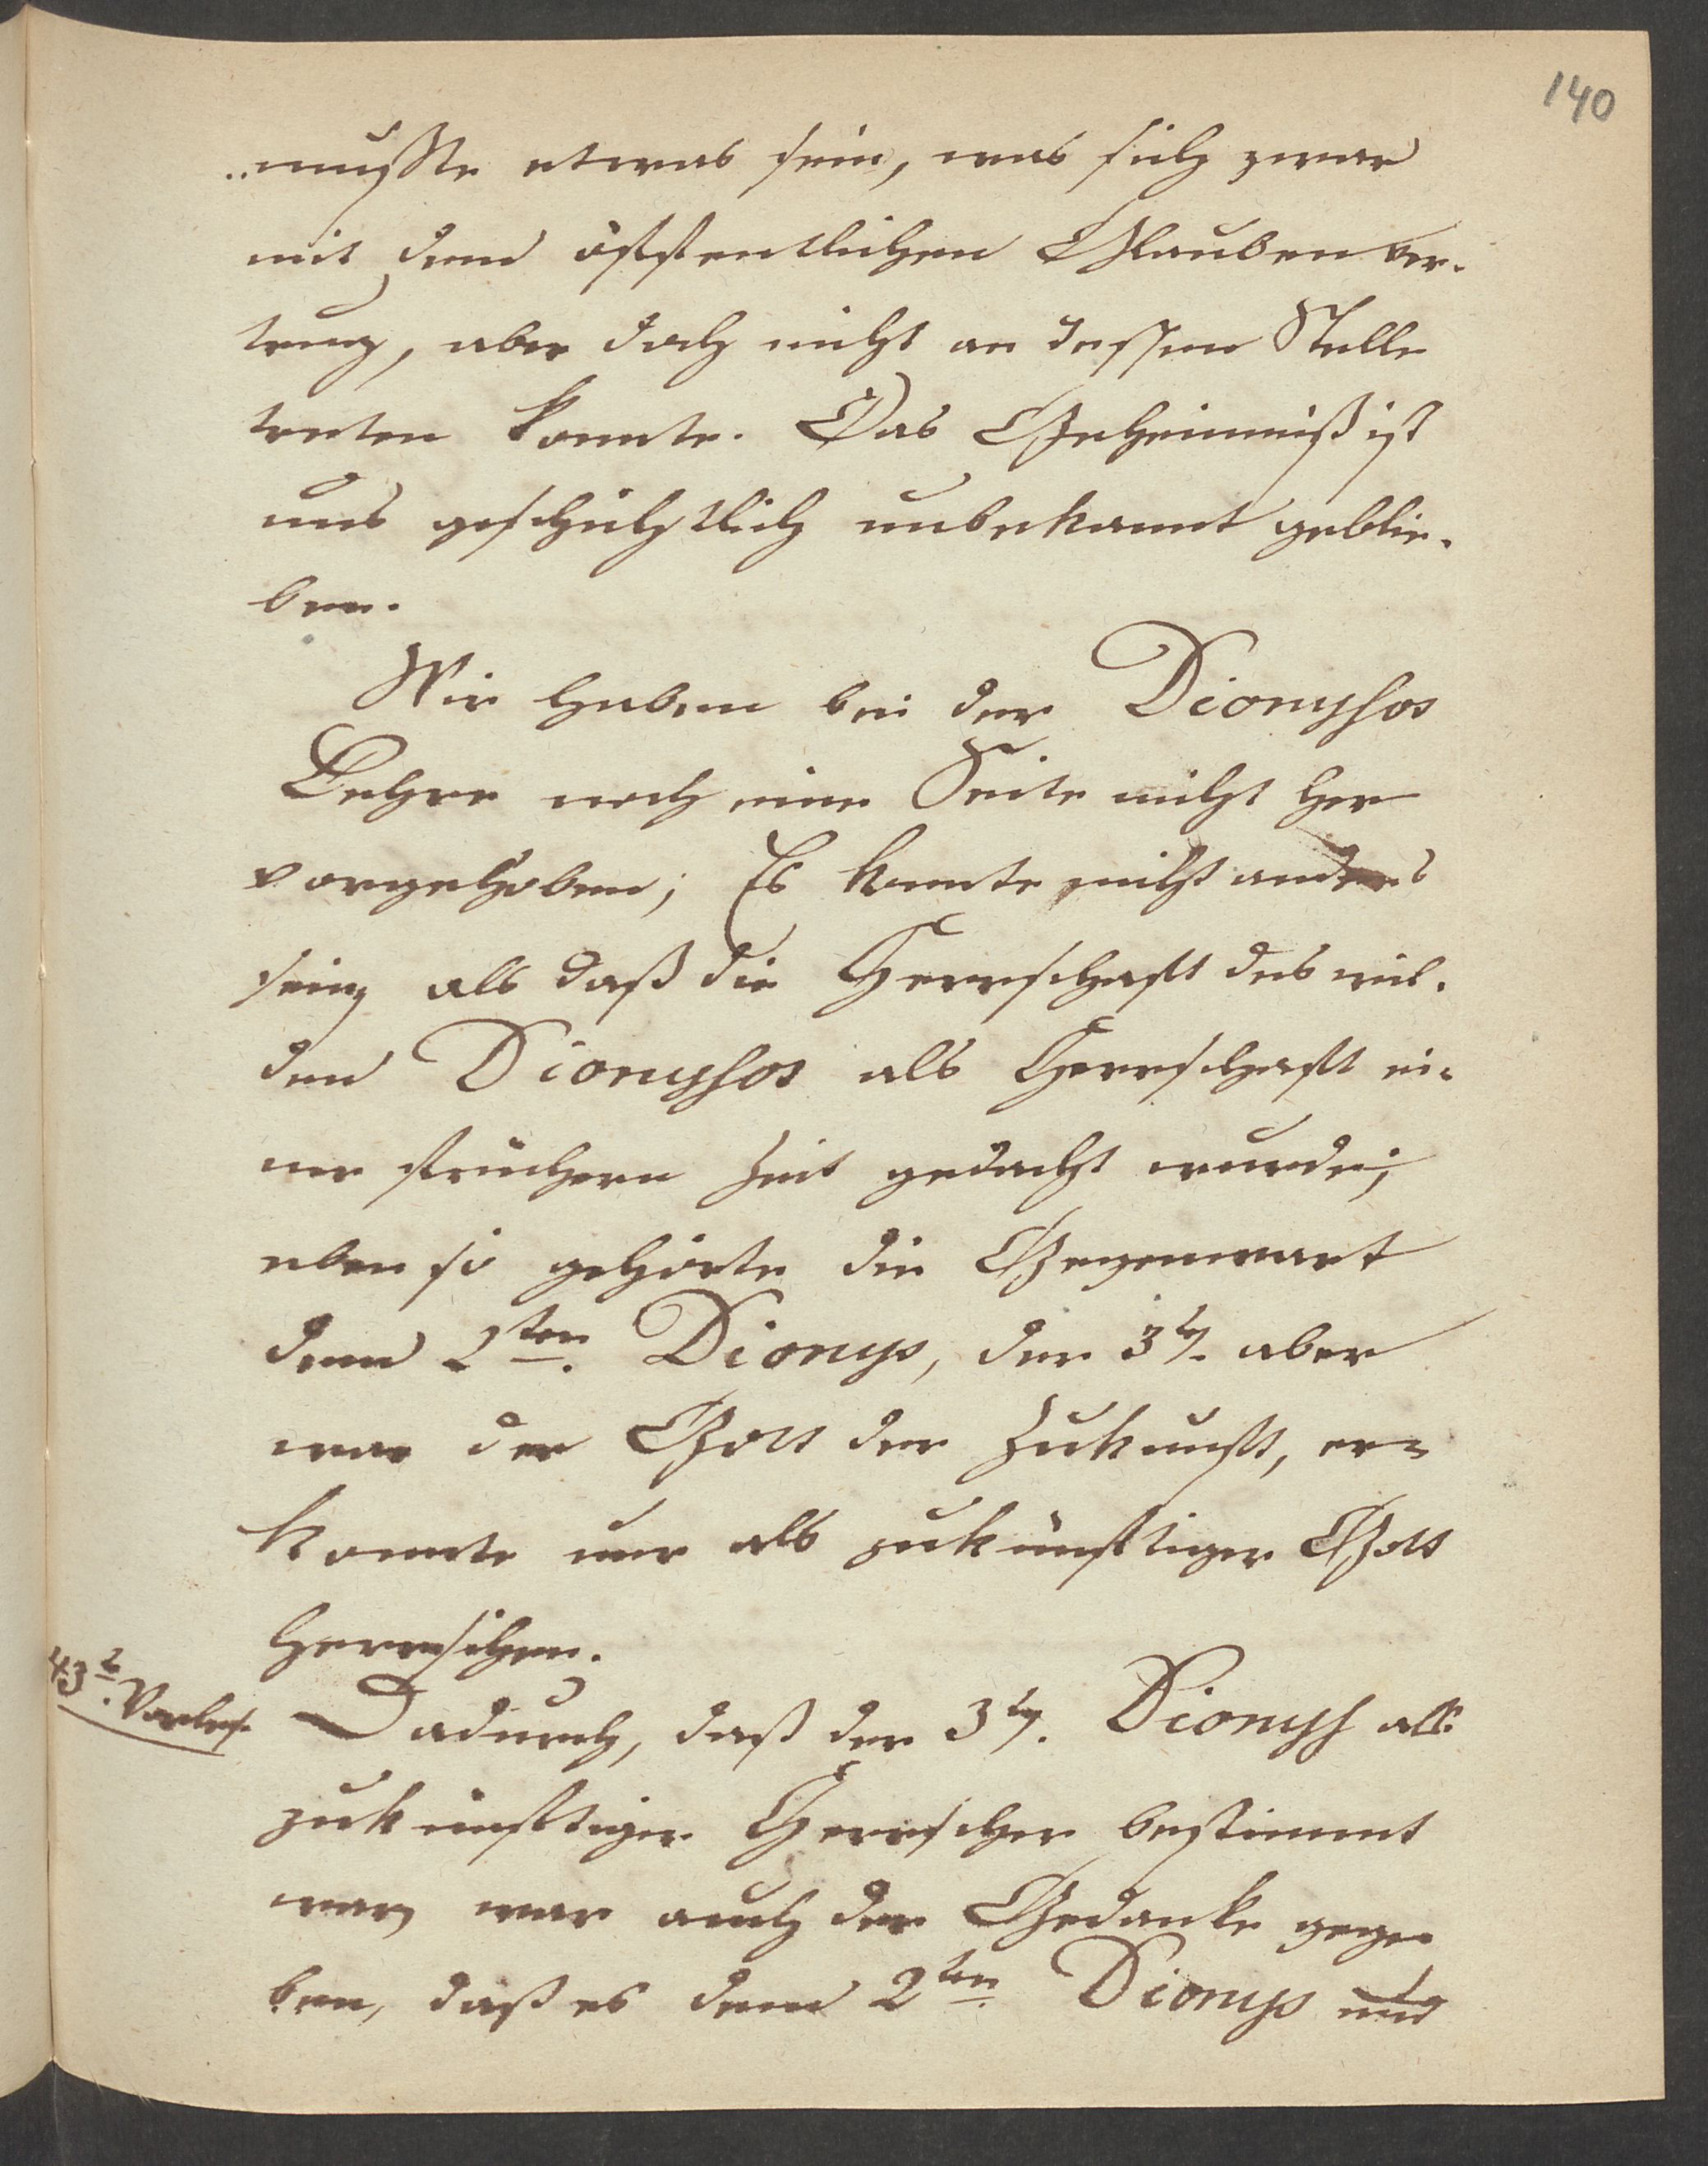 140
„mußte etwas sein, was sich zwar
mit dem öffentlichen Glauben ver-
trug, aber doch nicht an dessen Stelle
treten konnte. Das Geheimniß ist
uns geschichtlich unbekannt geblie-
ben.
Wir haben bei der Dionysos
Lehre noch eine Seite nicht her
vorgehoben; Es konnte nicht anders
sein, als daß die Herrschaft des wil-
den Dionysos als Herrschaft ei-
ner frühern Zeit gedacht wurde;
eben so gehörte die Gegenwart
dem 2ten. Dionys, der 3te. aber
war der Gott der Zukunft, er
konnte nur als zukünftiger Gott
herrschen.
43t. Vorles.
Dadurch, daß der 3te. Dionys als
zukünftiger Herrscher bestimmt
war, war auch der Gedanke gege
ben, daß es dem 2ten. Dionys und